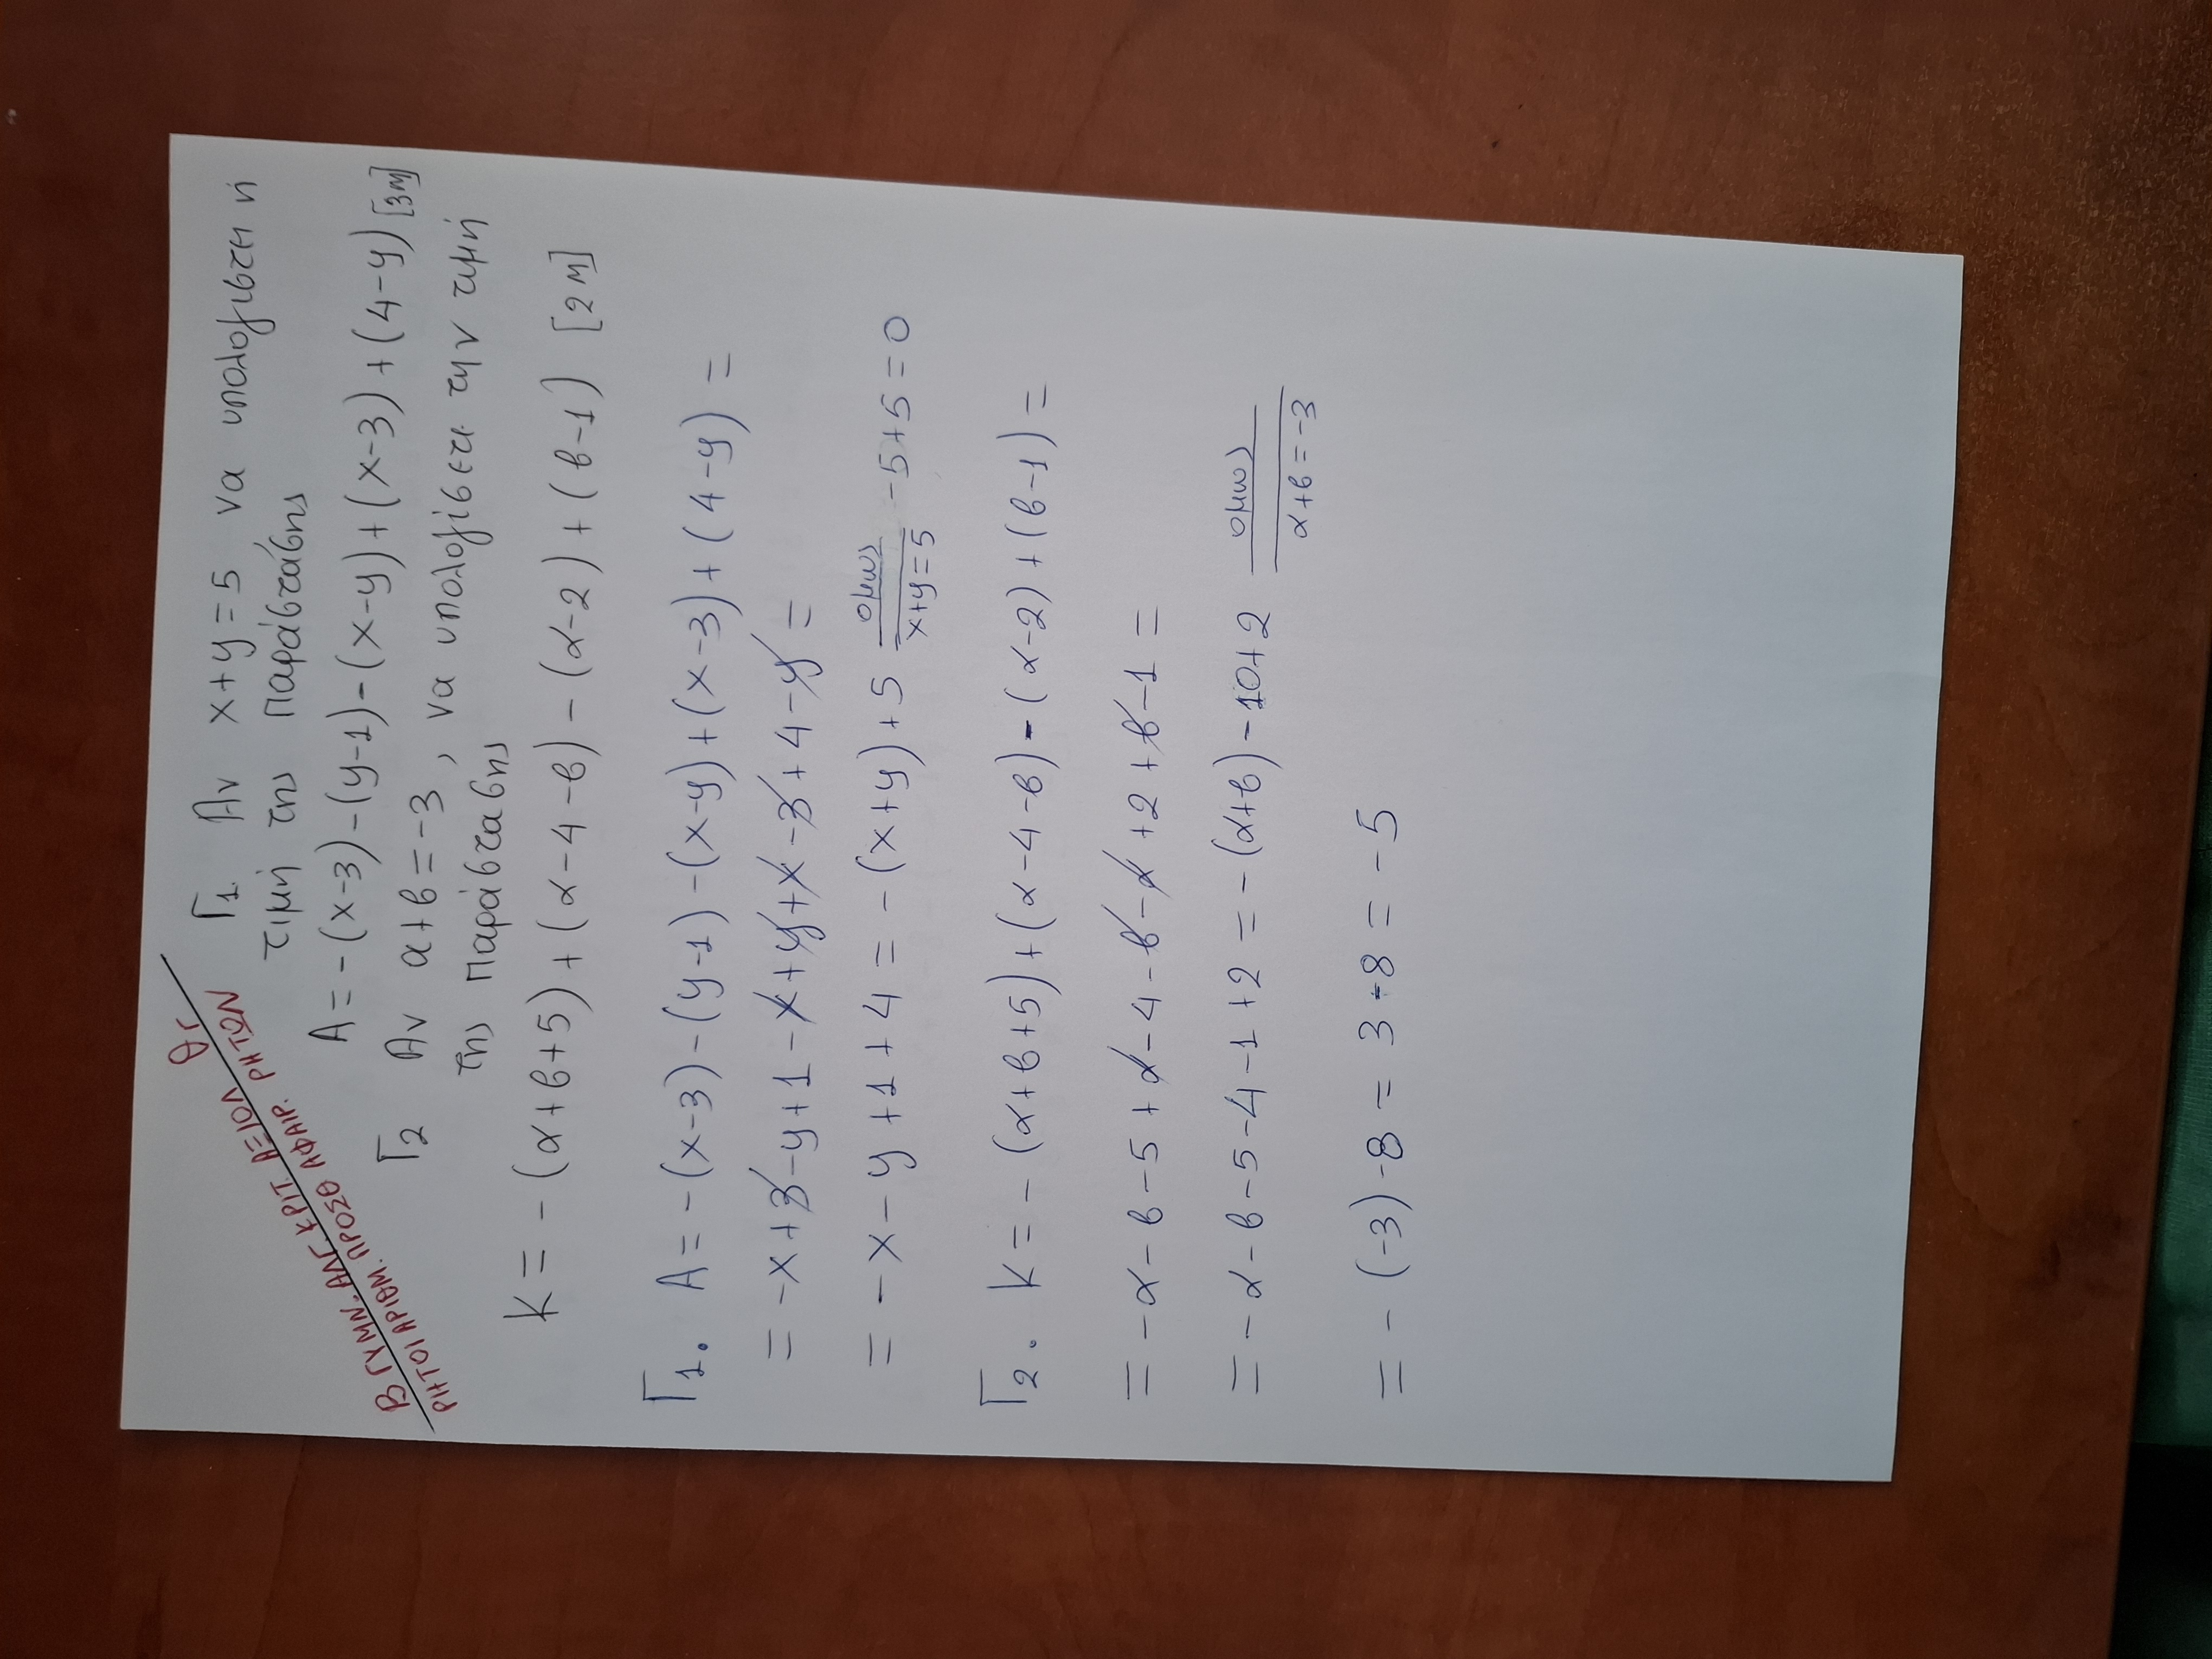 Θ Γ
Β ΓΥΜΝ. ΑΛΓ. ΚΡΙΤ. ΑΞΙΟΛ
ΡΗΤΟΙ ΑΡΙΘΜ. ΠΡΟΣΘ ΑΦΑΙΡ. ΡΗΤΩΝ
Γ1. Αν x+y=5 να υπολογιστεί η
τιμή της παράστασης
A=-(x-3)-(y-1)-(x-y)+(x-3)+(4-y) [3M]
Γ2 Αν α+β=-3, να υπολογίσετε την τιμή
της παράστασης
K=-(α+β+5)+(α-4-β)-(α-2)+(β-1) [2M]
Γ1. A=-(x-3)-(y-1)-(x-y)+(x-3)+(4-y)=
=-x+3-y+1-x+y+x-3+4-y=
=-x-y+1+4=-(x+y)+5 όμως x+y=5 -5+5=0
Γ2. K=-(α+β+5)+(α-4-β)-(α-2)+(β-1)=
=-α-β-5+α-4-β-α+2+β-1=
=-α-β-5-4-1+2=-(α+β)-10+2 όμως α+β=-3
=-(-3)-8=3-8=-5